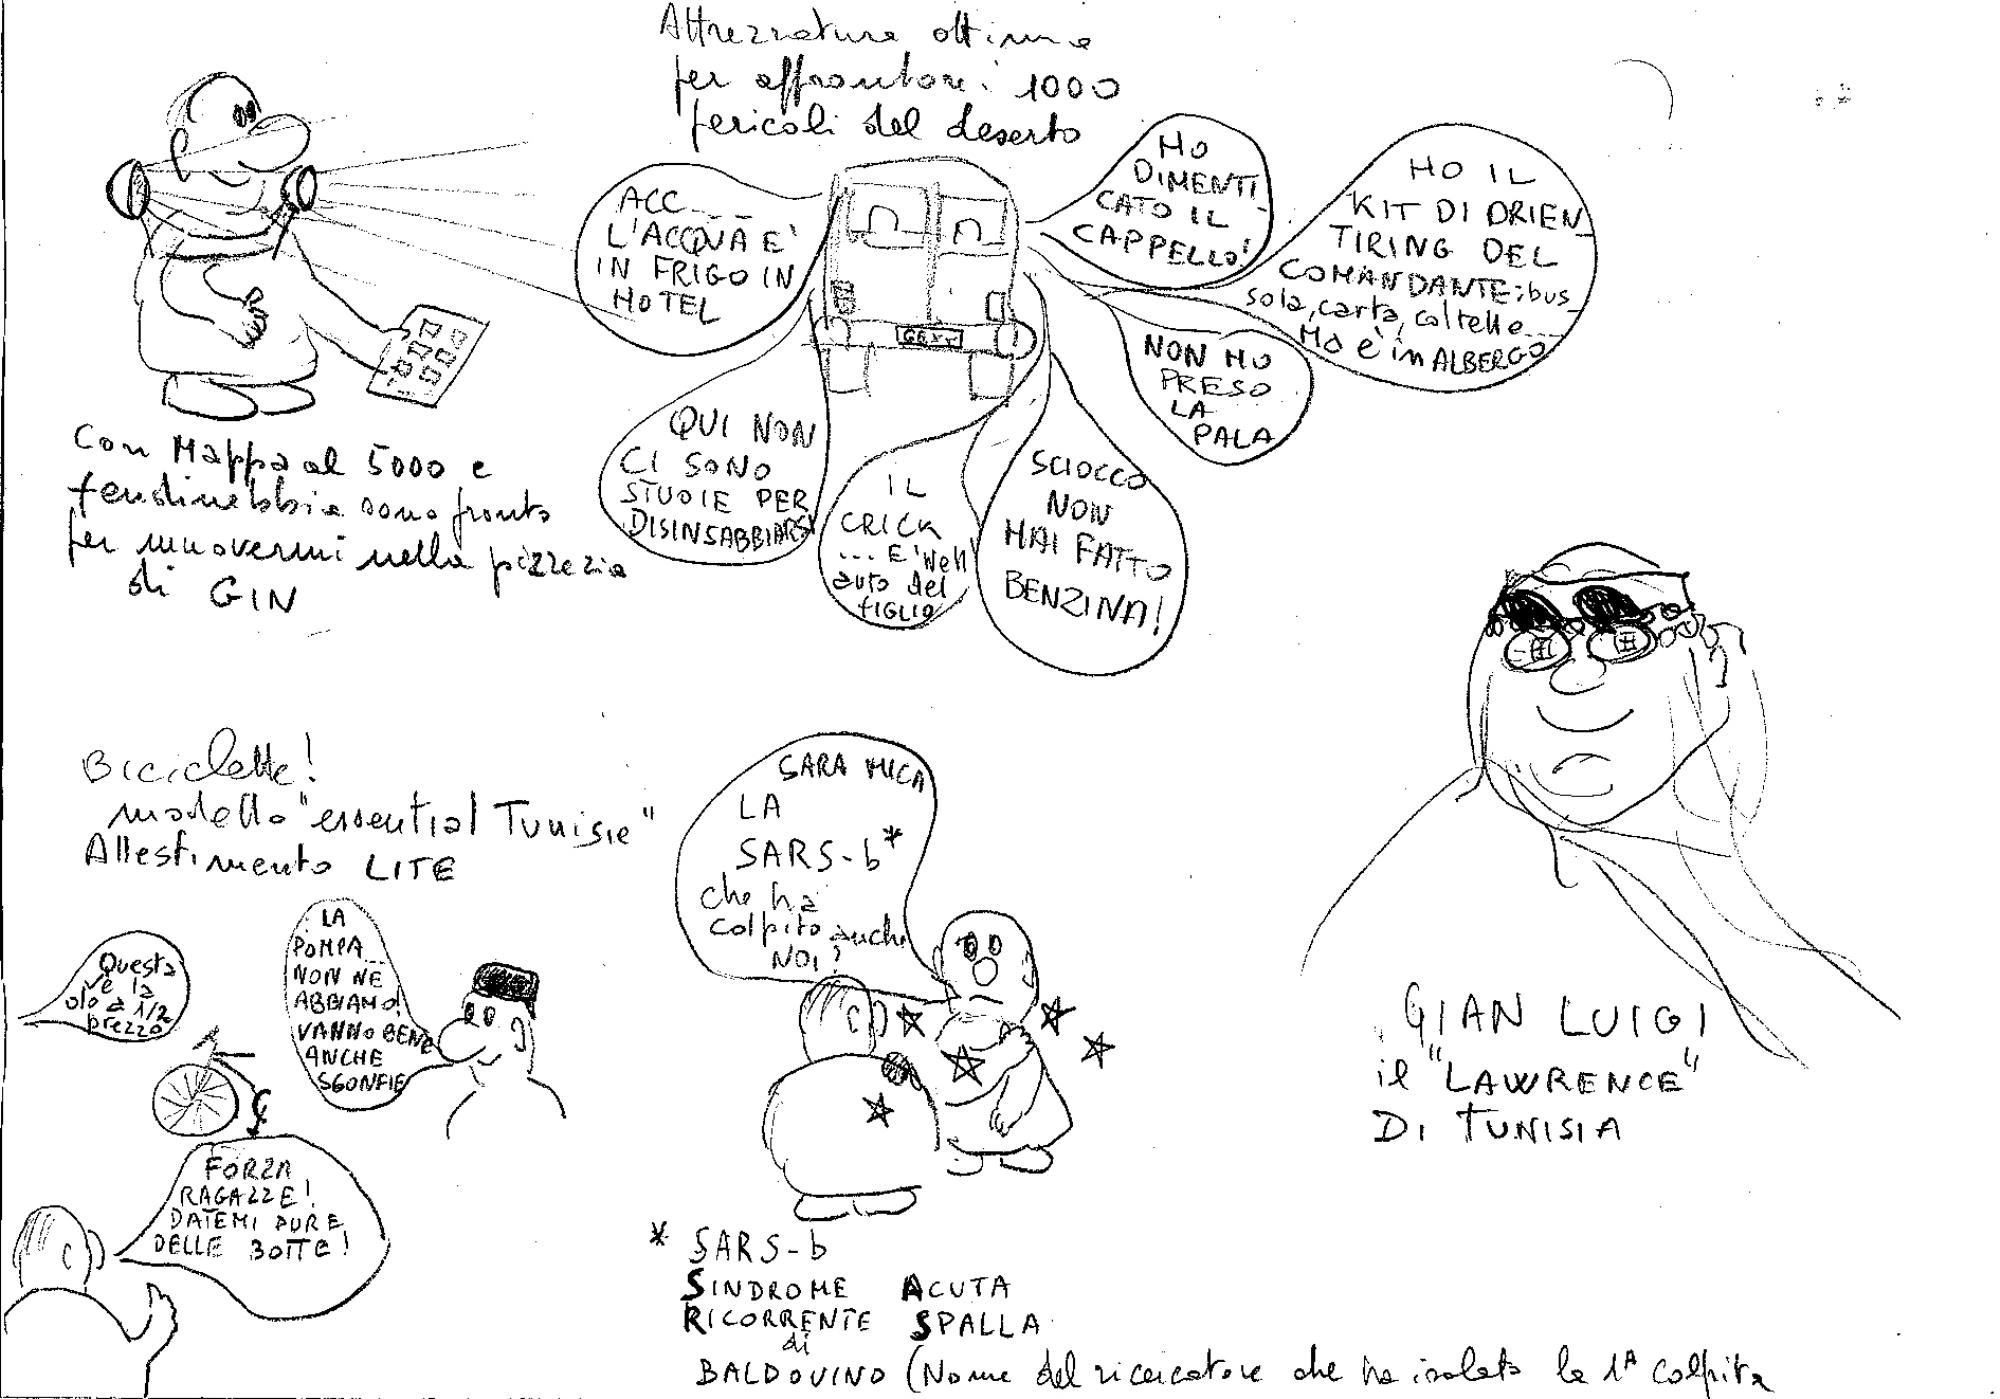 Attrezzatura ottima
per affrontare i 1000
pericoli del deserto
ACC....
L'ACQUA E'
IN FRIGO IN
HOTEL
HO
DIMENTI
CATO IL
CAPPELLO!
HO IL
KIT DI ORIEN
TIRING DEL
COMANDANTE: bus
sola, carta, coltello...
Ma è in ALBERGO
NON HO
PRESO
LA
PALA
QUI NON
CI SONO
STUOIE PER
DISINSABBIARSI
IL
CRICK
... E' nell'
auto del
FIGLIO
SCIOCCO
NON
HAI FATTO
BENZINA!
Con Mappa al 5000 e
fendinebbia sono pronto
per muovermi nella pizzeria
di GIN
Biciclette!
modello "essential Tunisie"
Allestimento LITE
Questa
ve la
do a 1/2
prezzo
LA
POMPA...
NON NE
ABBIAMO!
VANNO BENE
ANCHE
SGONFIE
FORZA
RAGAZZE!
DATEMI PURE
DELLE BOTTE!
SARA MICA
LA
SARS-b*
che ha
colpito anche
NOI?
* SARS-b
SINDROME ACUTA
RICORRENTE SPALLA
di
BALDOVINO (Nome del ricercatore che ha isolato la 1ª colpita
GIAN LUIGI
il "LAWRENCE"
DI TUNISIA